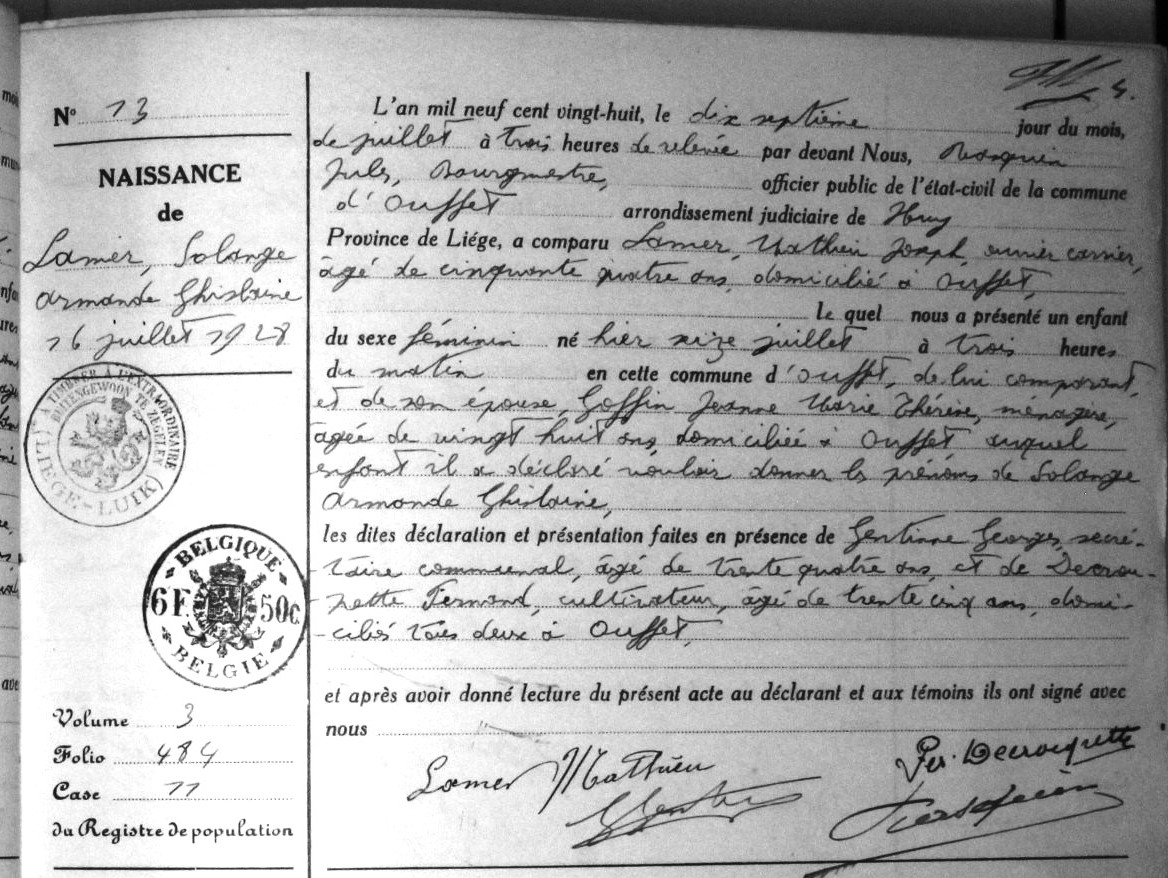 4.
N° 13
NAISSANCE
de
Lamer, Solange
Armande Ghislaine
16 juillet 1928
TIMBRER À L'EXTRAORDINAIRE
BUITENGEWOON TE ZEGELEN
(LIÉGE-LUIK)
BELGIQUE
6F 50c
BELGIE
Volume 3
Folio 484
Case 11
du Registre de population
L'an mil neuf cent vingt-huit, le dix septième jour du mois,
de juillet à trois heures de relevée par devant Nous,
Jules, Bourgmestre, officier public de l'état-civil de la commune
d'Ouffet arrondissement judiciaire de Huy
Province de Liége, a comparu Lamer, Mathieu Joseph, ouvrier carrier,
âgé de cinquante quatre ans, domicilié à Ouffet,
Le quel nous a présenté un enfant
du sexe féminin né hier seize juillet à trois heures
du matin en cette commune d'Ouffet, de lui comparant,
et de son épouse, Goffin Jeanne Marie Thérèse, ménagère,
âgée de vingt huit ans, domiciliée à Ouffet auquel
enfant il a déclaré vouloir donner les prénoms de Solange
Armande Ghislaine,
les dites déclaration et présentation faites en présence de Gentinne Georges, secré-
-taire communal, âgé de trente quatre ans, et de Decrou-
-pette Fernand, cultivateur, âgé de trente cinq ans, domi-
-ciliés tous deux à Ouffet,
et après avoir donné lecture du présent acte au déclarant et aux témoins ils ont signé avec
nous
Lamer Mathieu
Fer. Decroupette